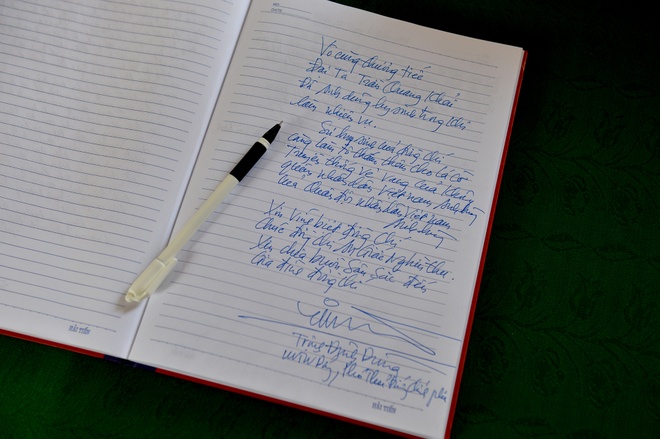 Vô cùng thương tiếc
Đại Tá Trần Quang Khải
Đã Anh dũng hy sinh trong khi
làm nhiệm vụ.
Sự hy sinh của đồng chí
càng làm tô thắm thêm cho lá cờ
truyền thống vẻ vang của Không
quân nhân dân Việt nam Anh hùng
của Quân đội nhân dân Việt nam
Anh hùng
Xin Vĩnh biệt đồng chí
chúc đồng chí An Giấc Nghìn thu.
Xin chia buồn Sâu Sắc đến
Gia đình đồng chí
Trịnh Đình Dũng
UVTW Đảng, Phó Thủ Tướng Chính phủ
HẢI TIẾN
HẢI TIẾN